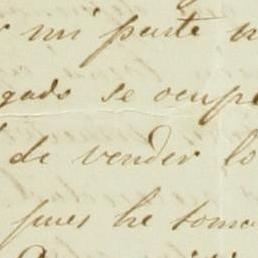 mi parte
gado se ocupe
de vender lo
pues he toma